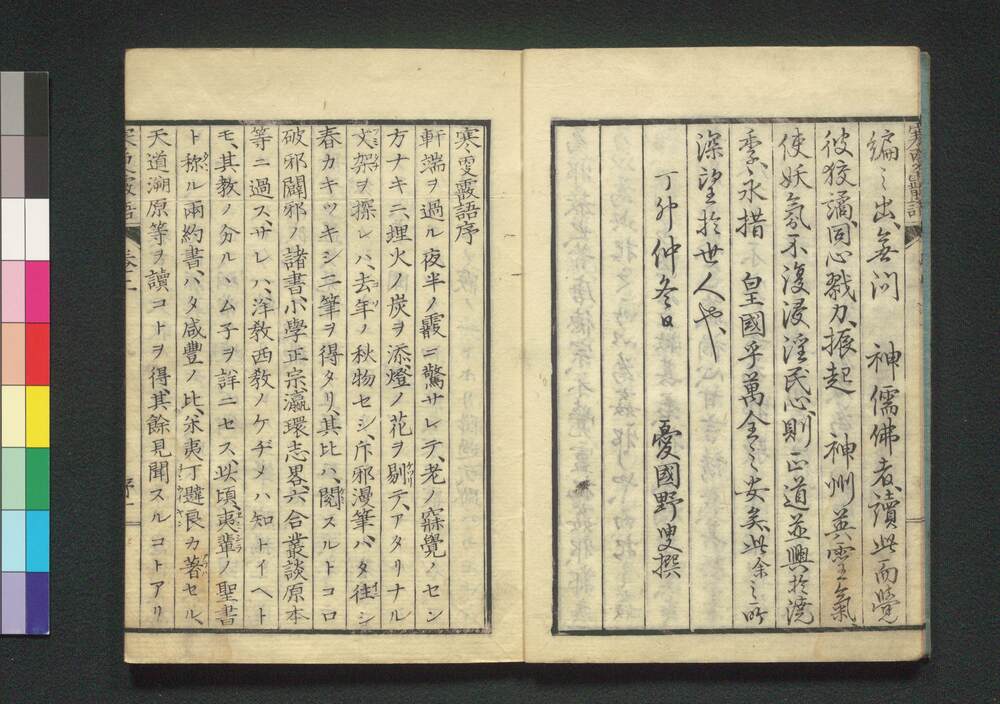 編之出、無問　神儒佛者、讀此而覺
彼狡謫、同心戮力、振起　神州英霊之氣、
使妖氛不復浸淫民心、則正道並興於澆
季、永措　皇國乎萬全之安矣、此余之所
深望於世人也、
丁卯仲冬日　憂國野叟撰
寒更霰語序
軒端ヲ過ル夜半ノ霰ニ驚サレテ、老ノ寐覺ノセン
方ナキニ、埋火ノ炭ヲ添、燈ノ花ヲ剔テ、アタリナル
文架ヲ探レハ、去年ノ秋物セシ、斥邪漫筆、ハタ往シ
春カキツキシ二三筆ヲ得タリ、其比ハ、閲スルトコロ
破邪闢邪ノ諸書、小學正宗、瀛環志畧、六合叢談原本
等ニ過スザレハ、洋教西教ノケヂメハ知トイヘト
モ、其教ノ分ルヽムネヲ詳ニセス、此頃、夷輩ノ聖書
ト称ル兩約書、ハタ咸豊ノ比、米夷丁韙良カ著セル、
天道溯原等ヲ讀コトヲ得、其餘見聞スルコトアリ